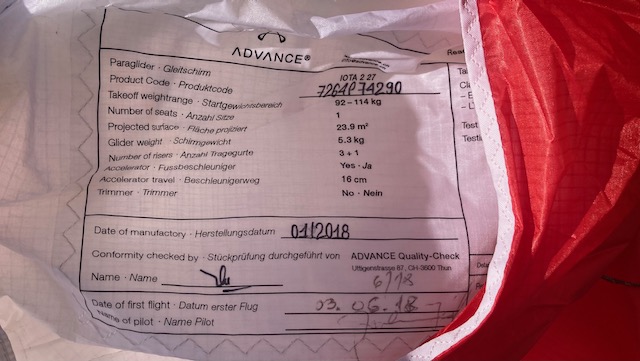 ADVANCE®
Paraglider · Gleitschirm IOTA 2 27
Product Code · Produktcode 7261P74290
Takeoff weightrange · Startgewichtsbereich 92 – 114 kg
Number of seats · Anzahl Sitze 1
Projected surface · Fläche projiziert 23.9 m²
Glider weight · Schirmgewicht 5.3 kg
Number of risers · Anzahl Tragegurte 3 + 1
Accelerator · Fussbeschleuniger Yes · Ja
Accelerator travel · Beschleunigerweg 16 cm
Trimmer · Trimmer No · Nein
Date of manufactory · Herstellungsdatum 01/2018
Conformity checked by · Stückprüfung durchgeführt von ADVANCE Quality-Check
Uttigenstrasse 87, CH-3600 Thun
Name · Name 6/18
Date of first flight · Datum erster Flug 03. 06. 18
of pilot · Name Pilot
Test
Test